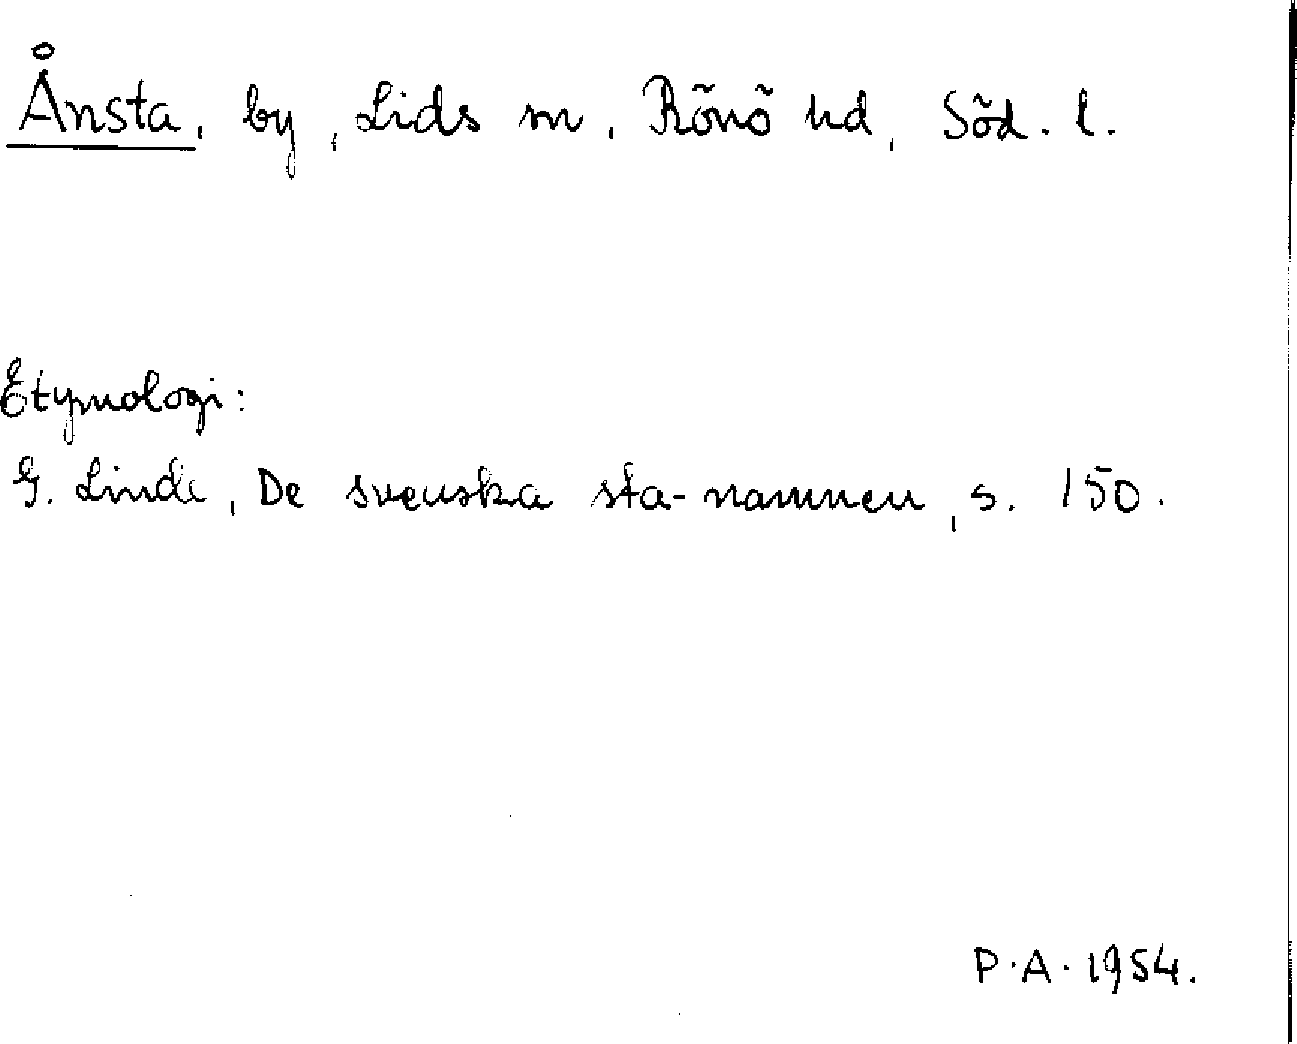 Ånsta, by, Lids sn, Rönö hd, Söd. l.
Etymologi:
G. Linde, De svenska sta-namnen, s. 150.
P.A. 1954.